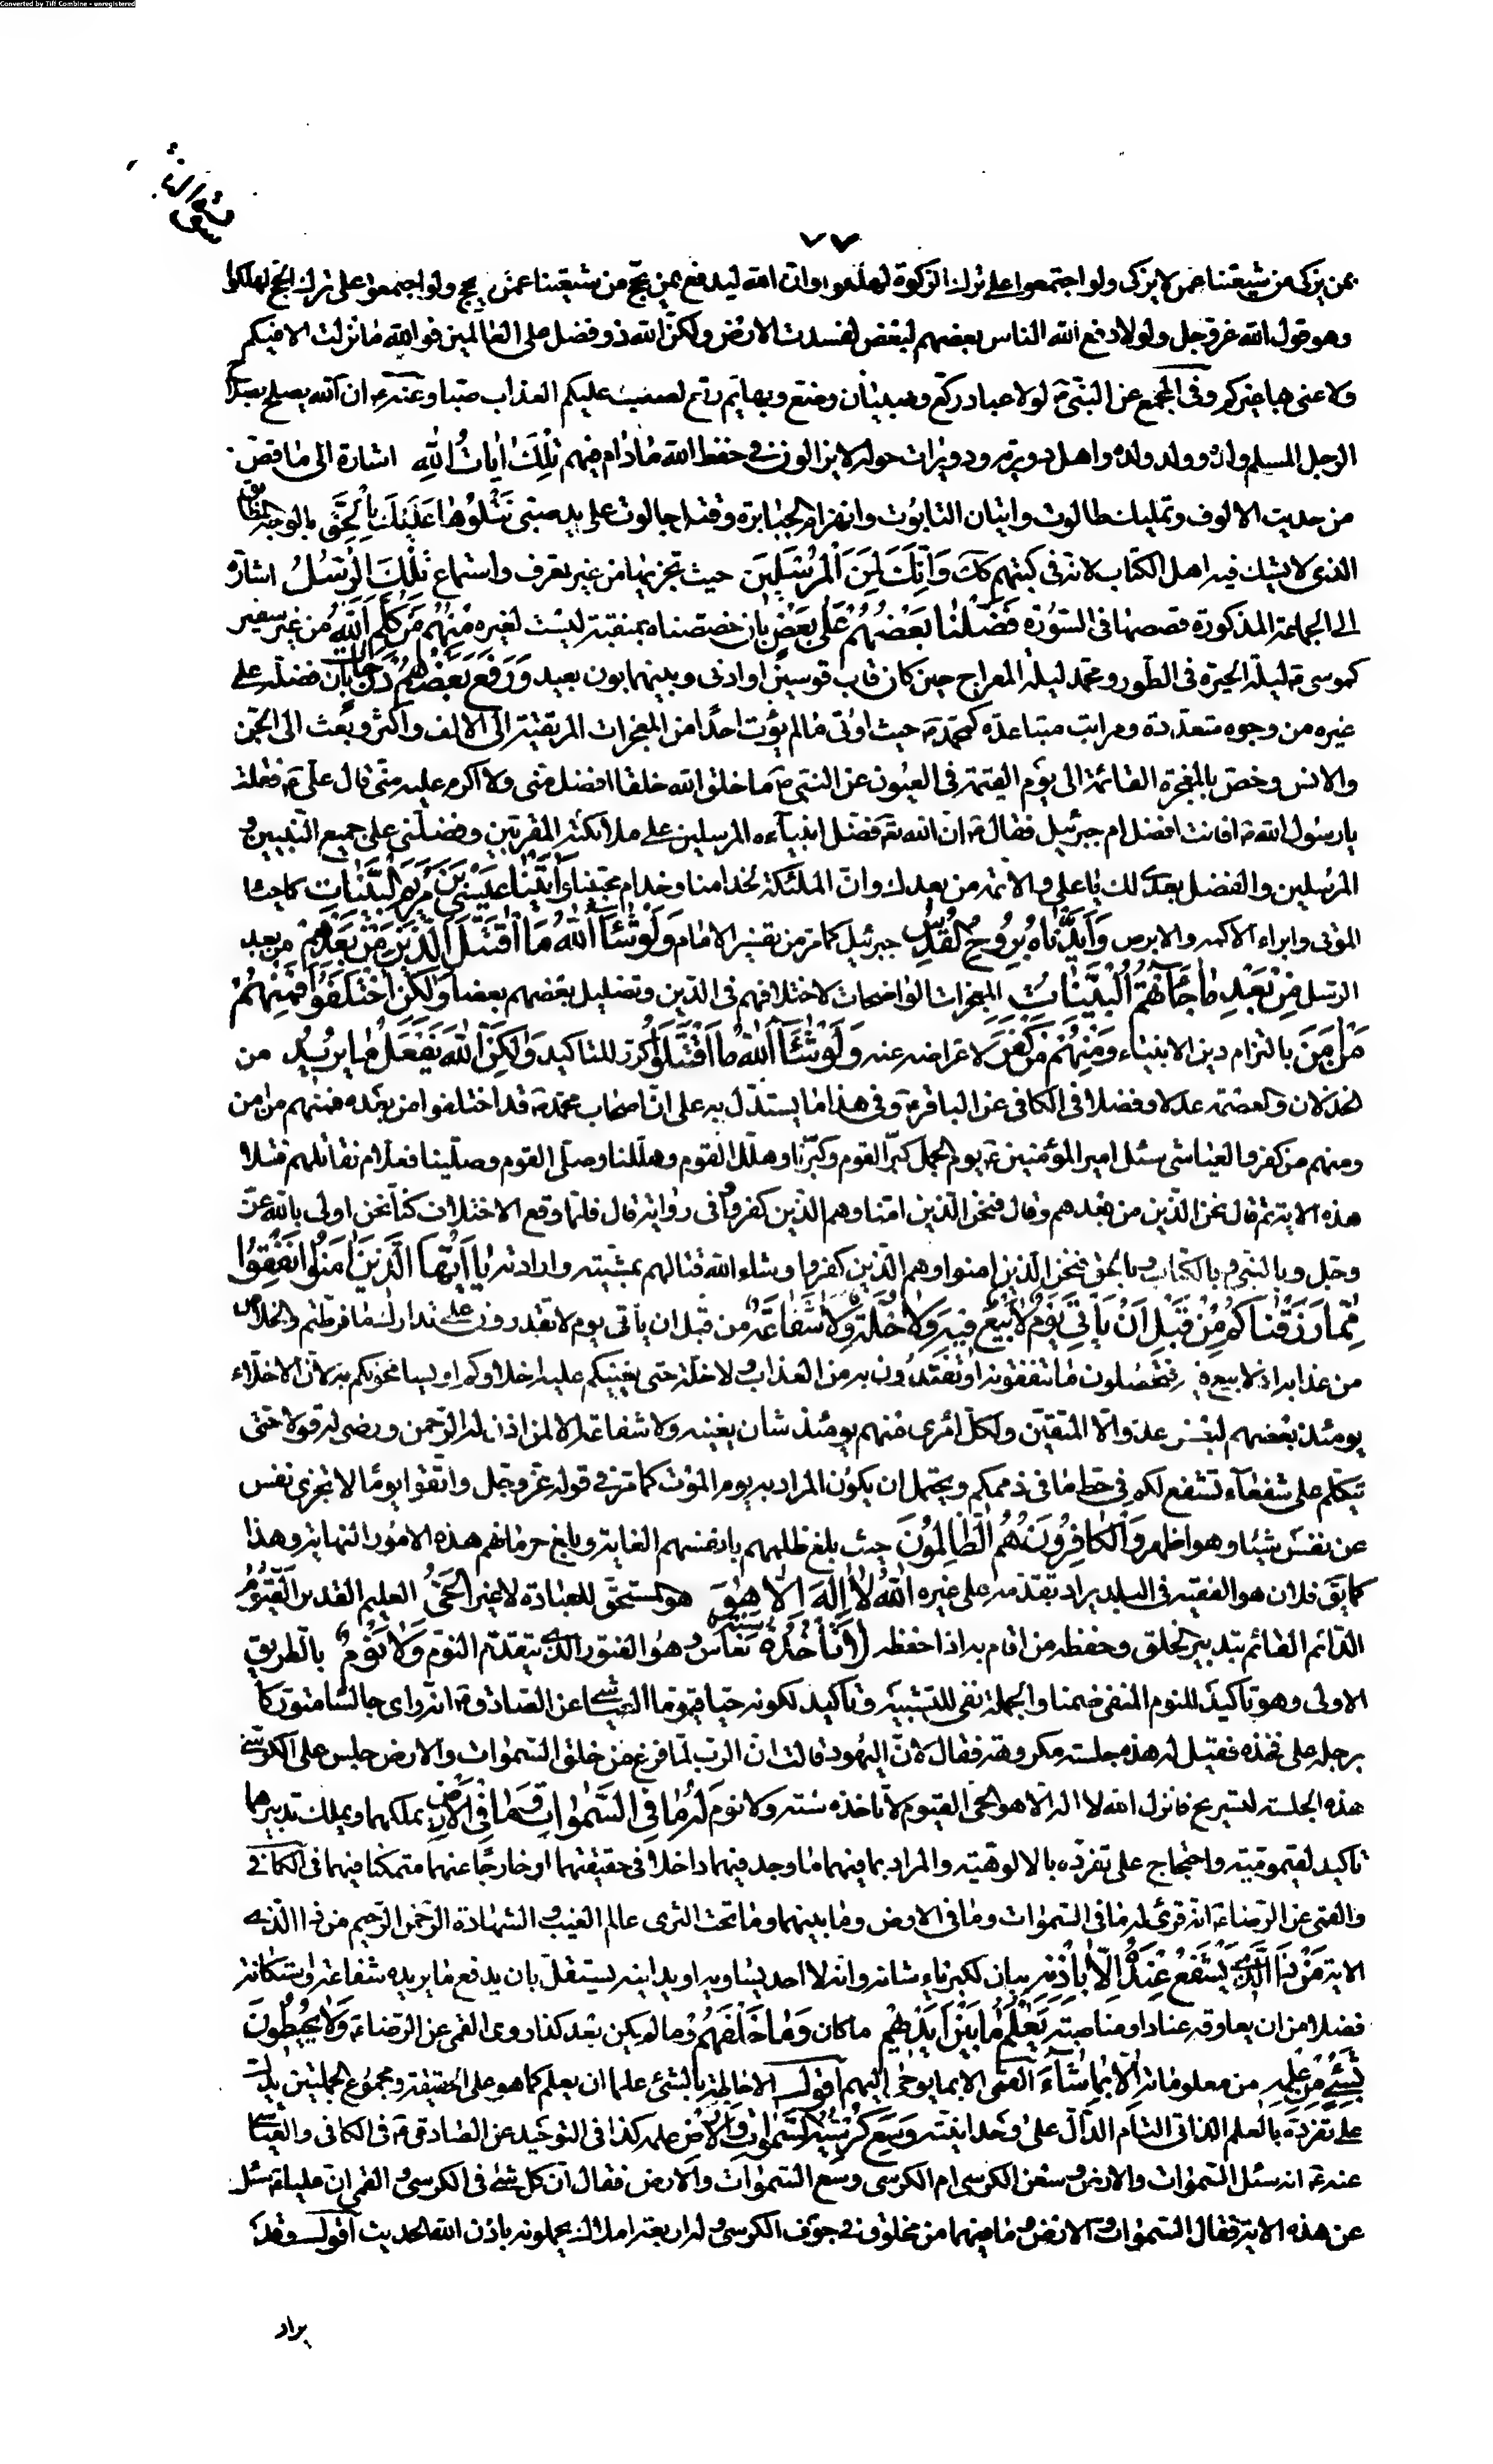 Converted by Tiff Combine - unregistered
٧٧
بمن يزكى من شيعتنا عمن لا يزكى ولو اجتمعوا على ترك الزكوة لهلكوا وان الله ليدفع بمن يحج من شيعتنا عمن لا يحج ولو اجتمعوا على ترك الحج لهلكوا
وهو قول الله عز وجل ولولا دفع الله الناس بعضهم لبعض لفسدت الارض ولكن الله ذو فضل على العالمين فوالله ما نزلت الا فيكم
ولا عنى بها غيركم وفى المجمع عن النبى ص لولا عباد ركع وصبيان رضع وبهايم رتع لصب عليكم العذاب صبا وعنه ص ان الله يصلح بصلاح
الرجل المسلم ولده وولد ولده واهل دويرته ودويرات حوله لا يزالون فى حفظ الله ما دام فيهم تِلْكَ اٰيَاتُ اللّٰهِ اشارة الى ما قص
من حديث الالوف وتمليك طالوت واتيان التابوت وانهزام الجبابرة وقتل جالوت على يد صبى نَتْلُوهٰا عَلَيْكَ بِالْحَقِّ بالوجه المطابق
الذى لا يشك فيه اهل الكتاب لانه فى كتبهم كك وَاِنَّكَ لَمِنَ الْمُرْسَلِينَ حيث تخبر بها من غير تعرف واستماع تِلْكَ الرُّسُلُ اشارة
الى الجماعة المذكورة قصصها فى السورة فَضَّلْنٰا بَعْضَهُمْ عَلٰى بَعْضٍ بان خصصناه بمنقبة ليست لغيره مِنْهُمْ مَنْ كَلَّمَ اللّٰهُ من غير سفير
كموسى ع ليلة الحيرة فى الطور ومحمد ليلة المعراج حين كان قاب قوسين او ادنى وبينهما بون بعيد وَرَفَعَ بَعْضَهُمْ دَرَجٰاتٍ بان فضله على
غيره من وجوه متعددة ومراتب متباعدة كمحمد ص حيث اوتى ما لم يؤت احدا من المعجزات المرتقية الى الالف واكثر وبعث الى الجن
والانس وخص بالمعجزة القائمة الى يوم القيمة فى العيون عن النبى ص ما خلق الله خلقا افضل منى ولا اكرم عليه منى قال على ع فقلت
يا رسول الله ص افانت افضل ام جبرئيل فقال ص ان الله تعه فضل انبيآءه المرسلين على ملائكته المقربين وفضلنى على جميع النبيين و
المرسلين والفضل بعدى لك يا على والائمه من بعدك وان الملئكة لخدامنا وخدام محبينا وَآتَيْنٰا عِيسَى بْنَ مَرْيَمَ الْبَيِّنٰاتِ كاحياء
الموتى وابراء الاكمه والابرص وَاَيَّدْنٰاهُ بِرُوحِ الْقُدُسِ جبرئيل كما مر من تفسير الامام وَلَوْ شٰآءَ اللّٰهُ مَا اقْتَتَلَ الَّذِينَ مِنْ بَعْدِهِمْ من بعد
الرسل مِنْ بَعْدِ مٰا جٰآءَتْهُمُ الْبَيِّنٰاتُ المعجزات الواضحات لاختلافهم فى الدين وتضليل بعضهم بعضا وَلٰكِنِ اخْتَلَفُوا فَمِنْهُمْ
مَنْ اٰمَنَ بالتزام دين الانبياء وَمِنْهُمْ مَنْ كَفَرَ لاعراضه عنه وَلَوْ شٰآءَ اللّٰهُ مَا اقْتَتَلُوا كرر للتاكيد وَلٰكِنَّ اللّٰهَ يَفْعَلُ مٰا يُرِيدُ من
الخذلان والعصمة عدلا وفضلا فى الكافى عن الباقر ع وفى هذا ما يستدل به على ان اصحاب محمد ص قد اختلفوا من بعده فمنهم من امن
ومنهم من كفر والعياشى سئل امير المؤمنين ع يوم الجمل كبر القوم وكبرنا وهلل القوم وهللنا وصلى القوم وصلينا فعلام نقاتلهم فتلا
هذه الاية ثم قال نحن الذين من بعدهم وقال فنحن الذين امنا وهم الذين كفروا وفى رواية قال فلما وقع الاختلاف كنا نحن اولى بالله عز
وجل وبالنبى ص وبالكتاب وبالحق فنحن الذين امنوا وهم الذين كفروا وشاء الله قتالهم بمشيته وارادته يٰا اَيُّهَا الَّذِينَ اٰمَنُوا اَنْفِقُوا
مِمّٰا رَزَقْنٰاكُمْ مِنْ قَبْلِ اَنْ يَأْتِىَ يَوْمٌ لٰا بَيْعٌ فِيهِ وَلٰا خُلَّةٌ وَلٰا شَفٰاعَةٌ من قبل ان يأتى يوم لا تقدرون على تدارك ما فرطتم والخلاص
من عذابه اذ لا بيع فيه فتحصلون ما تنفقونه او تفتدون به من العذاب ولا خلة حتى يعينكم عليه اخلاؤكم او يسامحونكم به لان الاخلاء
يومئذ بعضهم لبعض عدو الا المتقين ولكل امرئ منهم يومئذ شان يغنيه ولا شفاعة الا لمن اذن له الرحمن ورضى له قولا حتى
تتكلم على شفعآء تشفع لكم فى حط ما فى ذممكم ويحتمل ان يكون المراد به يوم الموت كما مر فى قوله عز وجل واتقوا يوما لا تجزى نفس
عن نفس شيئا وهو اظهر وَالْكٰافِرُونَ هُمُ الظّٰالِمُونَ حيث بلغ ظلمهم بانفسهم الغاية وبلغ حرمانهم هذه الامور النهاية وهذا
كما يق فلان هو الفقيه فى البلد يراد تقدمه على غيره اَللّٰهُ لٰا اِلٰهَ اِلّٰا هُوَ هو المستحق للعبادة لا غير اَلْحَىُّ العليم القدير اَلْقَيُّومُ
الدائم القائم بتدبير الخلق وحفظه من اقام به اذا حفظه لٰا تَأْخُذُهُ سِنَةٌ نعاس وهو الفتور الذى يتقدم النوم وَلٰا نَوْمٌ بالطريق
الاولى وهو تاكيد للنوم المنفى ضمنا والجملة نفى للتشبيه وتاكيد لكونه حيا قيوما العياشى عن الصادق ع انه رأى جالسا متوركا
برجله على فخذه فقيل له هذه جلسة مكروهة فقال لا ان اليهود قالت ان الرب لما فرغ من خلق السموات والارض جلس على الكرسى
هذه الجلسة ليستريح فانزل الله لا اله الا هو الحى القيوم لا تاخذه سنة ولا نوم لَهُ مٰا فِى السَّمٰوٰاتِ وَمٰا فِى الْاَرْضِ يملكهما ويملك تدبيرهما
تاكيد لقيوميته واحتجاج على تفرده بالالوهية والمراد بما فيهما ما وجد فيهما داخلا فى حقيقتهما او خارجا عنهما متمكنا فيهما فى الكافى
والقمى عن الرضا ع انه قرئ له ما فى السموات وما فى الارض وما بينهما وما تحت الثرى عالم الغيب والشهادة الرحمن الرحيم من ذا الذى
الاية مَنْ ذَا الَّذِى يَشْفَعُ عِنْدَهُ اِلّٰا بِاِذْنِهِ بيان لكبرياء شانه وانه لا احد يساويه او يدانيه يستقل بان يدفع ما يريده شفاعة واستكانة
فضلا من ان يعاوقه عنادا او مناصبة يَعْلَمُ مٰا بَيْنَ اَيْدِيهِمْ ما كان وَمٰا خَلْفَهُمْ وما لم يكن بعد كذا روى القمى عن الرضا ع وَلٰا يُحِيطُونَ
بِشَىْءٍ مِنْ عِلْمِهِ من معلوماته اِلّٰا بِمٰا شٰآءَ القمى الا بما يوحى اليهم اقول الاحاطة بالشئ علما ان يعلم كما هو على الحقيقة ومجموع الجملتين يدل
على تفرده بالعلم الذاتى التام الدال على وحدانيته وَسِعَ كُرْسِيُّهُ السَّمٰوٰاتِ وَالْاَرْضَ علمه كذا فى التوحيد عن الصادق ع وفى الكافى والعياشى
عنه ع انه سئل السموات والارض وسعن الكرسى ام الكرسى وسع السموات والارض فقال ان كل شئ فى الكرسى والقمى ان عليا ع سئل
عن هذه الاية فقال السموات والارض وما فيهما من مخلوق فى جوف الكرسى وله اربعة املاك يحملونه باذن الله الحديث اقول وقد
يراد